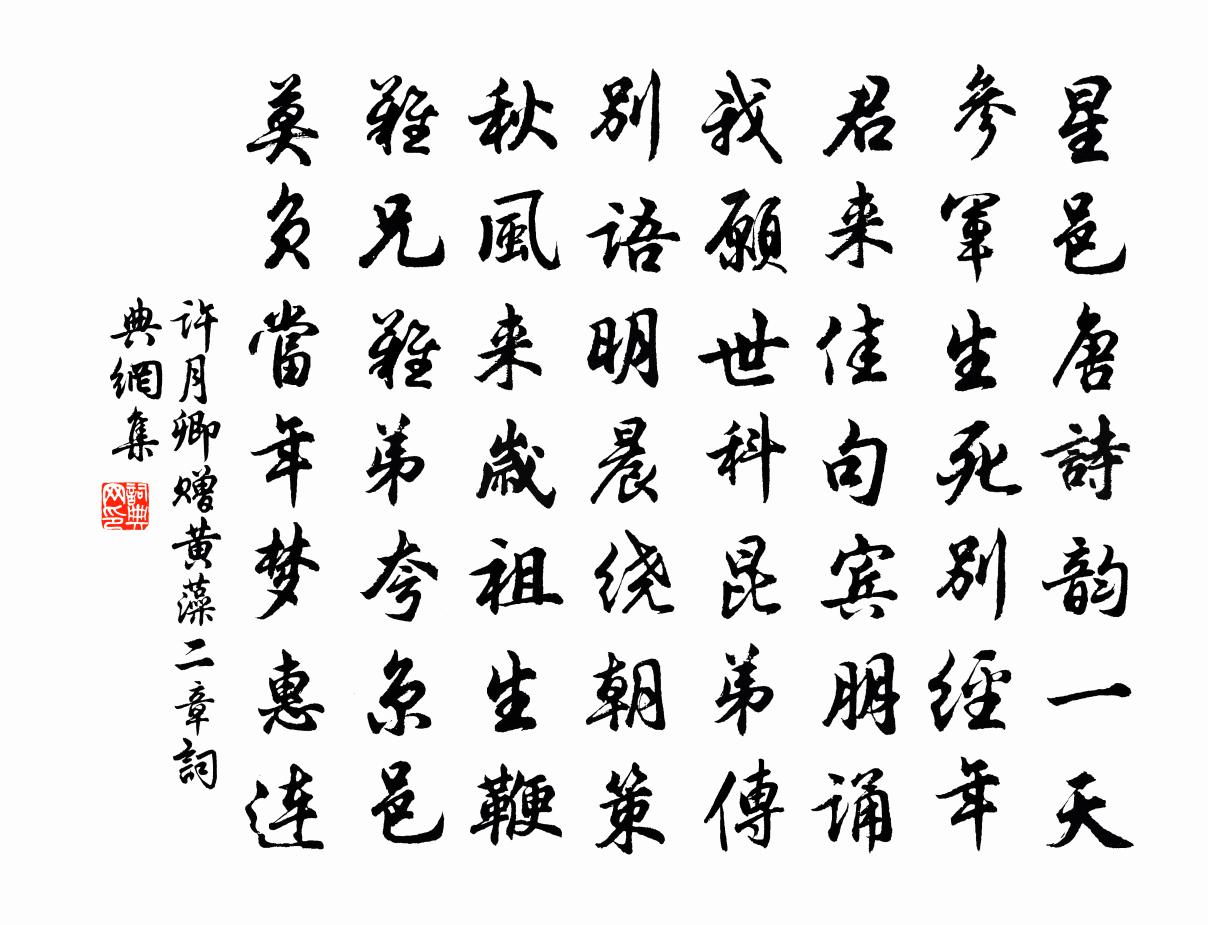 星邑唐詩韵一天
參軍生死别經年
君来佳句宾朋诵
我願世科昆弟傳
别语明晨绕朝策
秋風来歲祖生鞭
難兄難弟夸京邑
莫负當年梦惠连
许月卿赠黄藻二章詞
典網集
詞典
网印